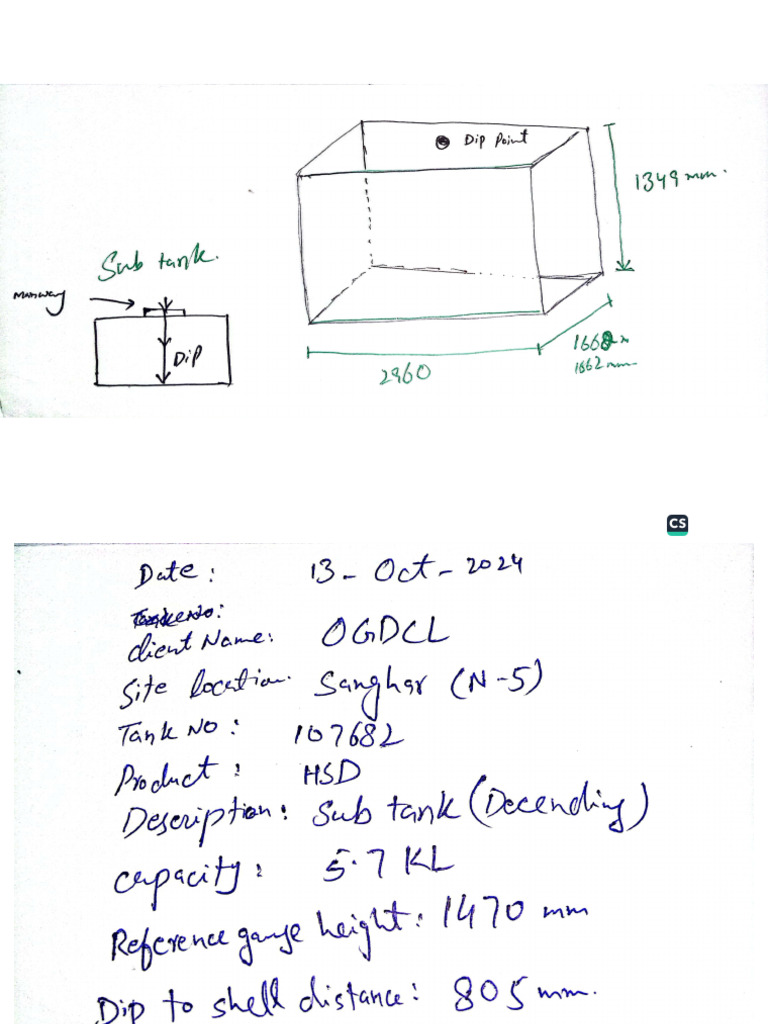 Dip Point
1349 mm.
Sub tank.
manway
Dip
2960
1662 mm
CS
Date: 13-Oct-2024
Tank No:
Client Name: OGDCL
Site location. Sanghar (N-5)
Tank No: 107682
Product: HSD
Description: Sub tank (Decending)
capacity: 5.7 KL
Reference gauge height: 1470 mm
Dip to shell distance: 805 mm.